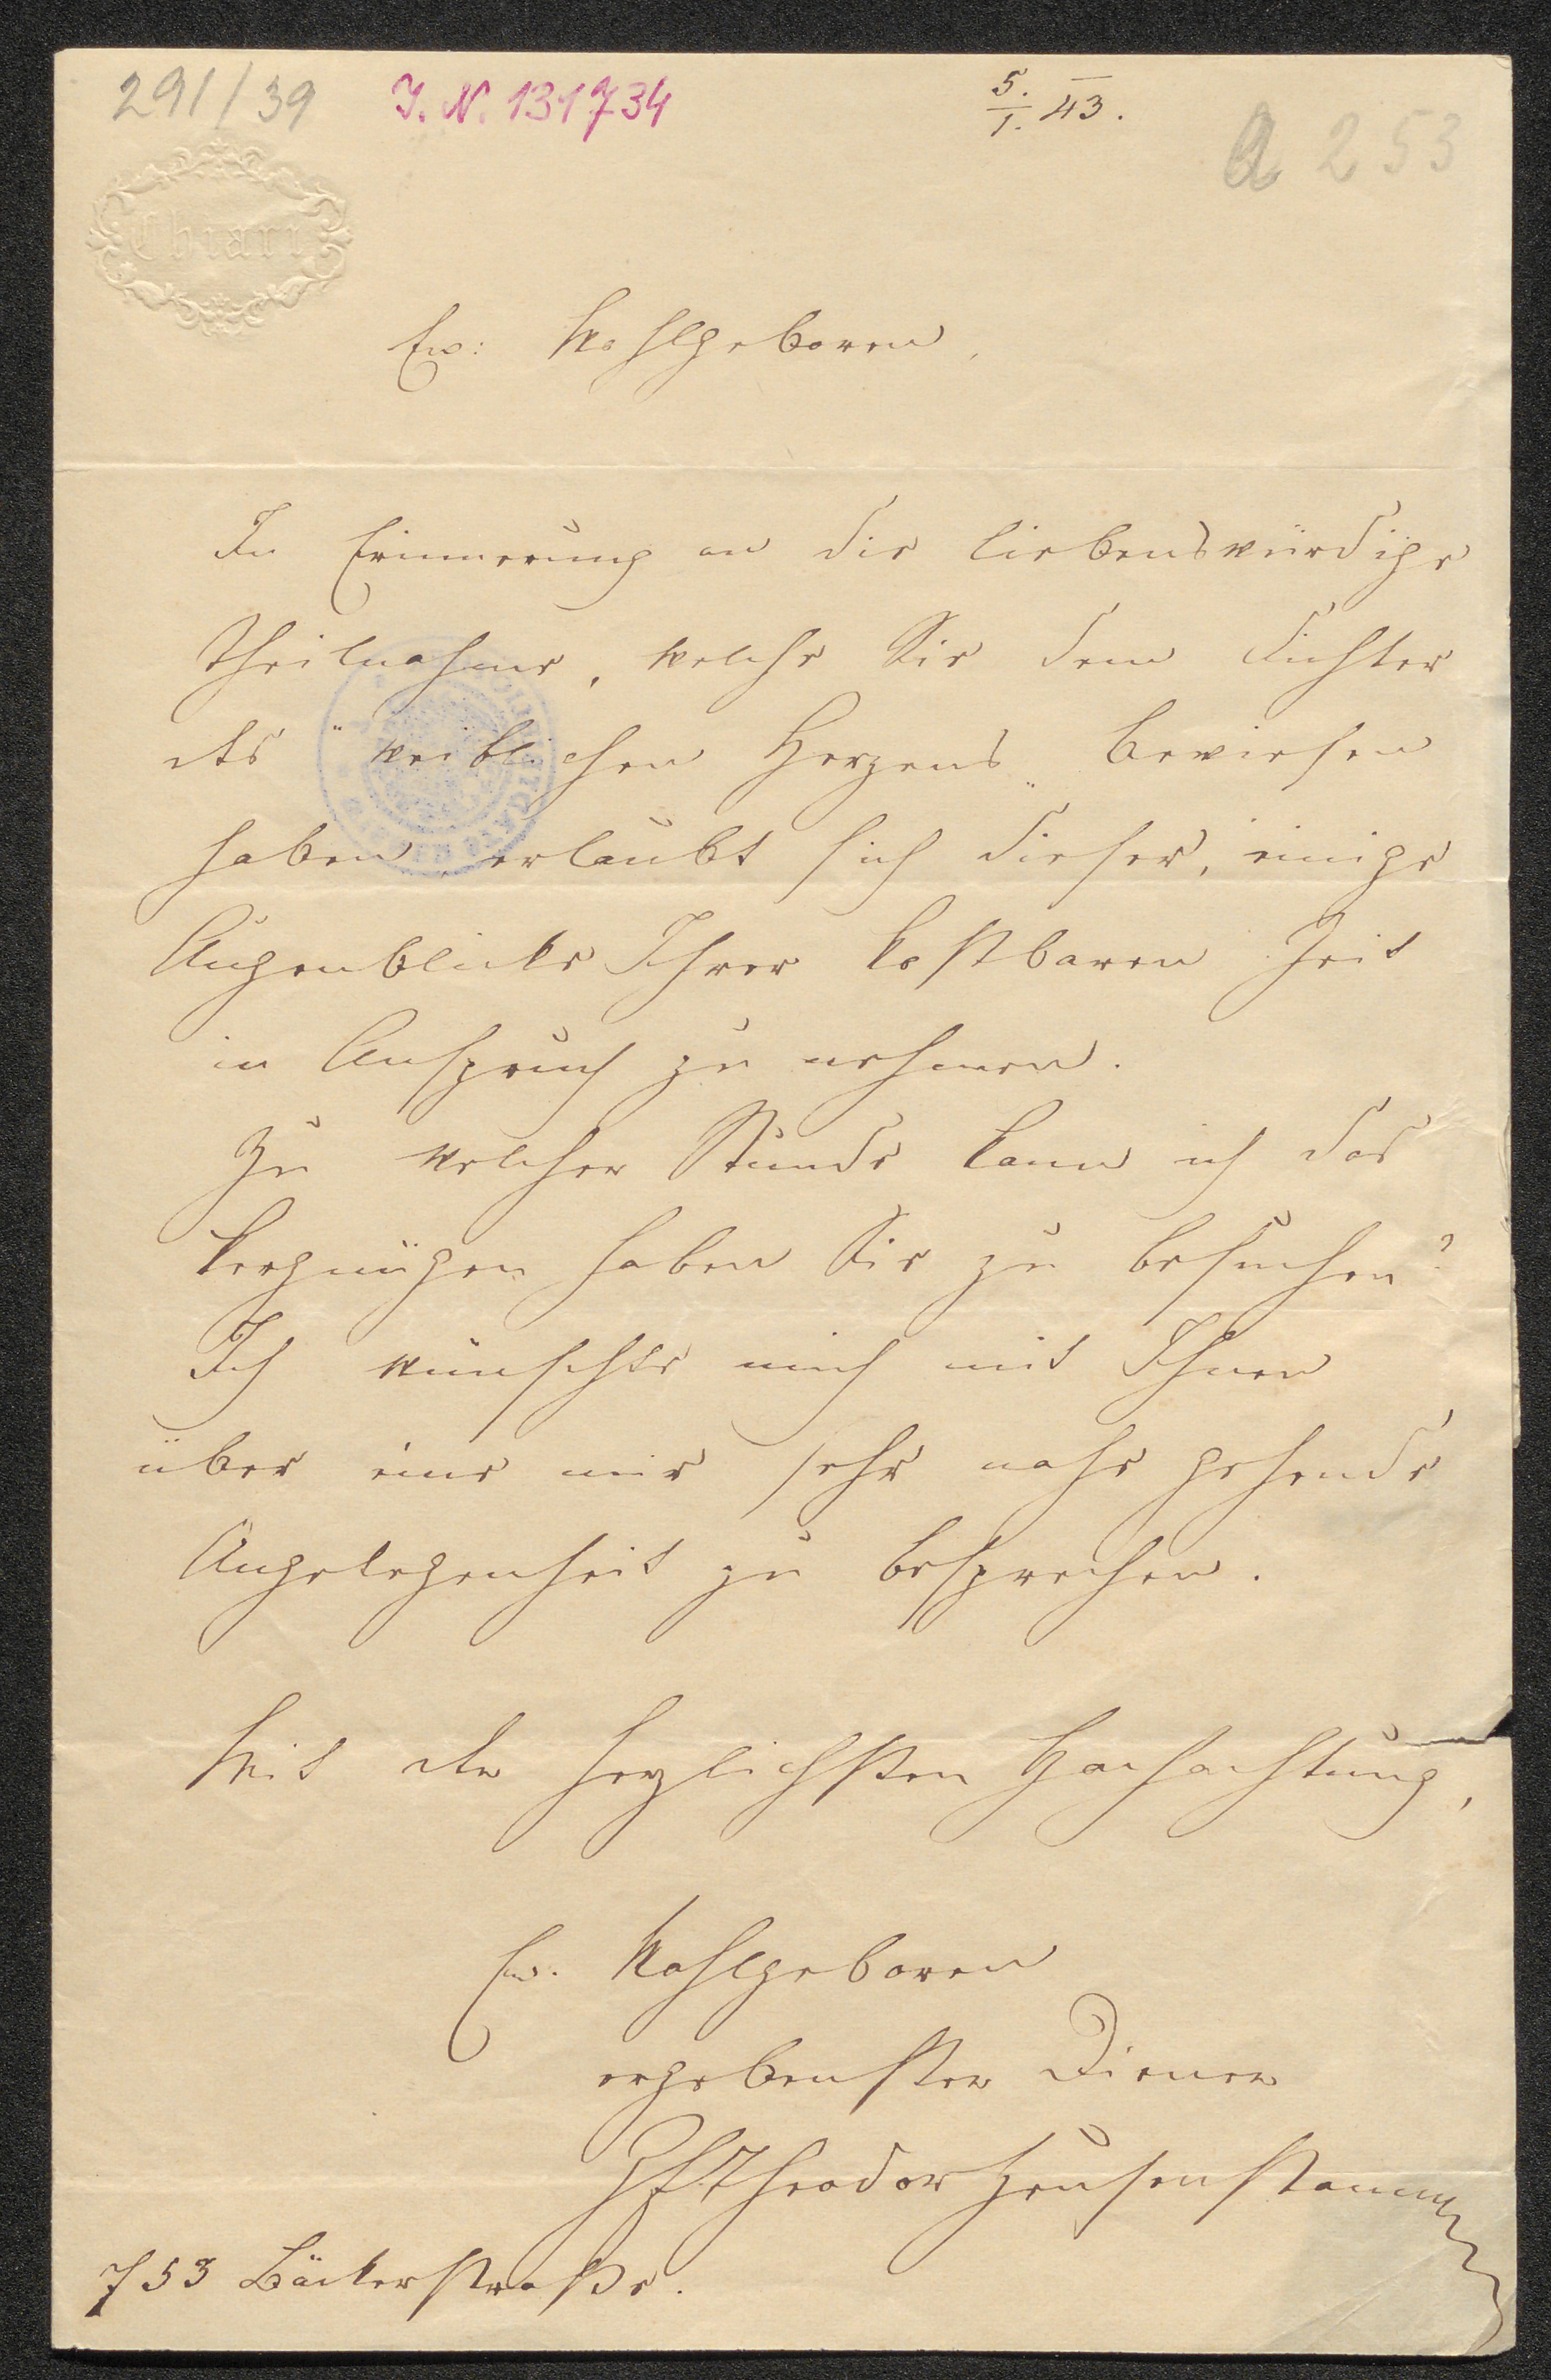 291/39 I. N. 131734
5./1. 43.
a 253
Chiari
Ew: Wohlgeboren,
In Erinnerung an die liebenswürdige
Theilnahme, welche Sie dem Dichter
des "weiblichen Herzens" bewiesen
haben, erlaubt sich dieser, einige
Augenblicke Ihrer kostbaren Zeit
in Anspruch zu nehmen.
Zu welcher Stunde kann ich das
Vergnügen haben Sie zu besuchen?
Ich wünschte mich mit Ihnen
über eine mir sehr nahe gehende
Angelegenheit zu besprechen.
Mit der herzlichsten Hochachtung,
Ew. Wohlgeboren
ergebenster Diener
Theodor Heusenstamm
753 Bäckerstraße.